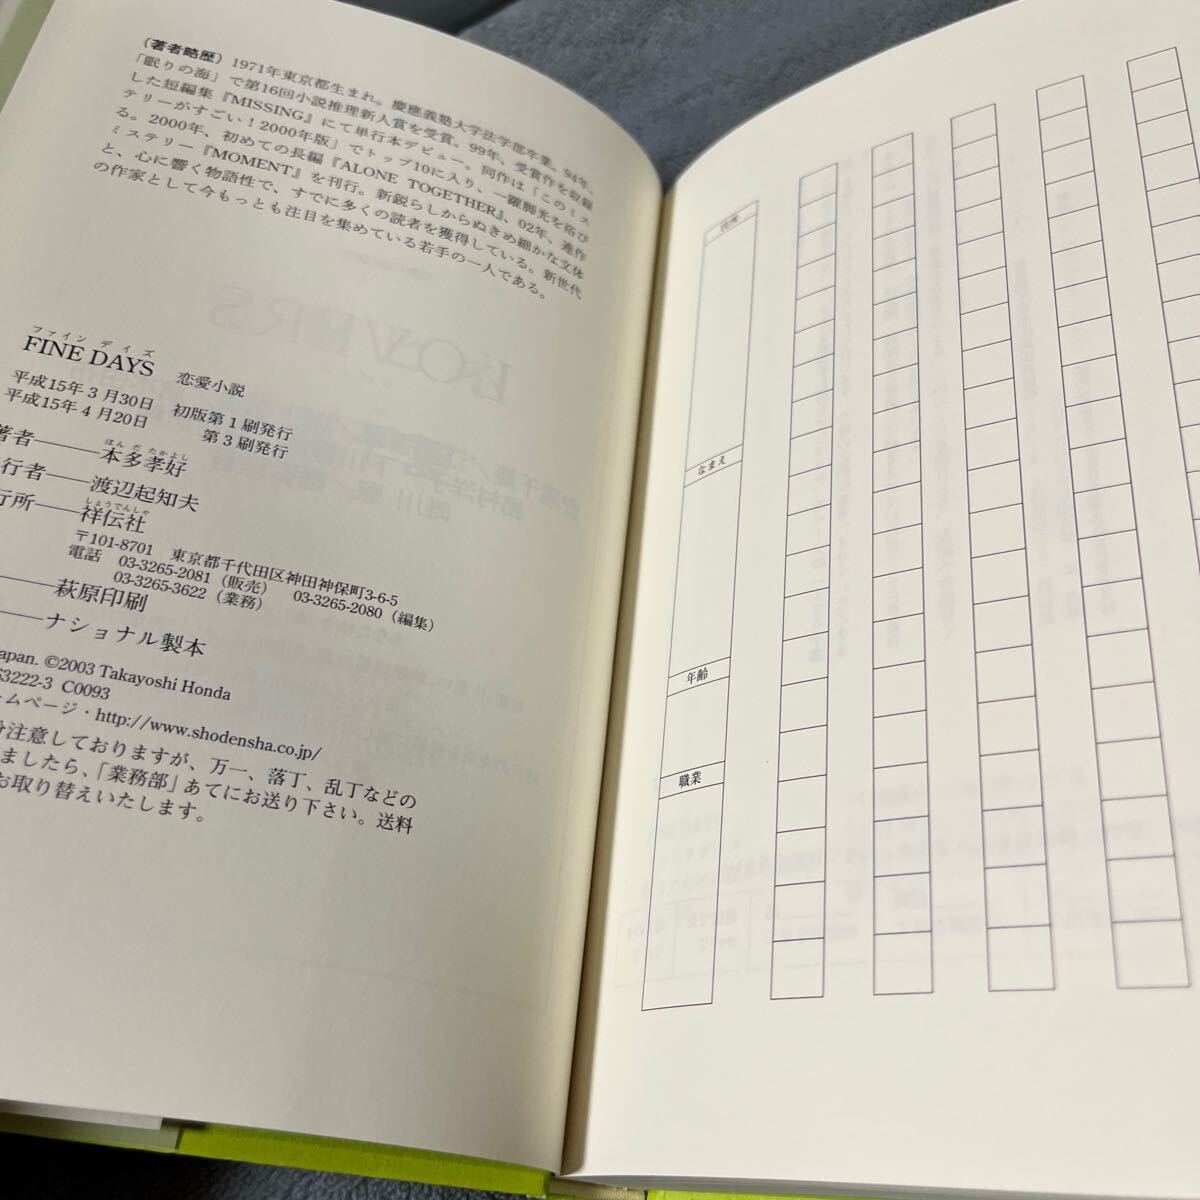 (著者略歴) 1971年東京都生まれ。慶應義塾大学法学部卒業。94年、
「眠りの海」で第16回小説推理新人賞を受賞。99年、受賞作を収録
した短編集『MISSING』にて単行本デビュー。同作は「このミス
テリーがすごい!2000年版」でトップ10に入り、一躍脚光を浴び
る。2000年、初めての長編『ALONE TOGETHER』、02年、連作
ミステリー『MOMENT』を刊行。新鋭らしからぬきめ細かな文体
と、心に響く物語性で、すでに多くの読者を獲得している。新世代
の作家として今もっとも注目を集めている若手の一人である。
ファイン デイズ
FINE DAYS 恋愛小説
平成15年3月30日 初版第1刷発行
平成15年4月20日 第3刷発行
ほんだたかよし
著者――本多孝好
行者――渡辺起知夫
しょうでんしゃ
行所――祥伝社
〒101-8701 東京都千代田区神田神保町3-6-5
電話 03-3265-2081(販売) 03-3265-2080(編集)
03-3265-3622(業務)
――萩原印刷
――ナショナル製本
apan. ©2003 Takayoshi Honda
63222-3 C0093
ームページ・http://www.shodensha.co.jp/
分注意しておりますが、万一、落丁、乱丁などの
ましたら、「業務部」あてにお送り下さい。送料
お取り替えいたします。
住所
なまえ
年齢
職業